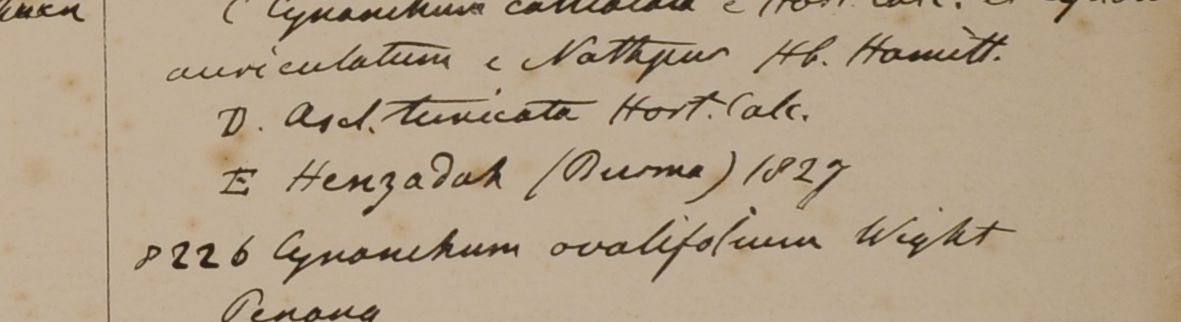 ( Cynanchum e Hort. Calc. et
auriculatum e Nathpur Hb. Hamilt.
D. Ascl. tunicata Hort. Calc.
E Henzadah (Burma) 1827
8226 Cynanchum ovalifolium Wight
Penang